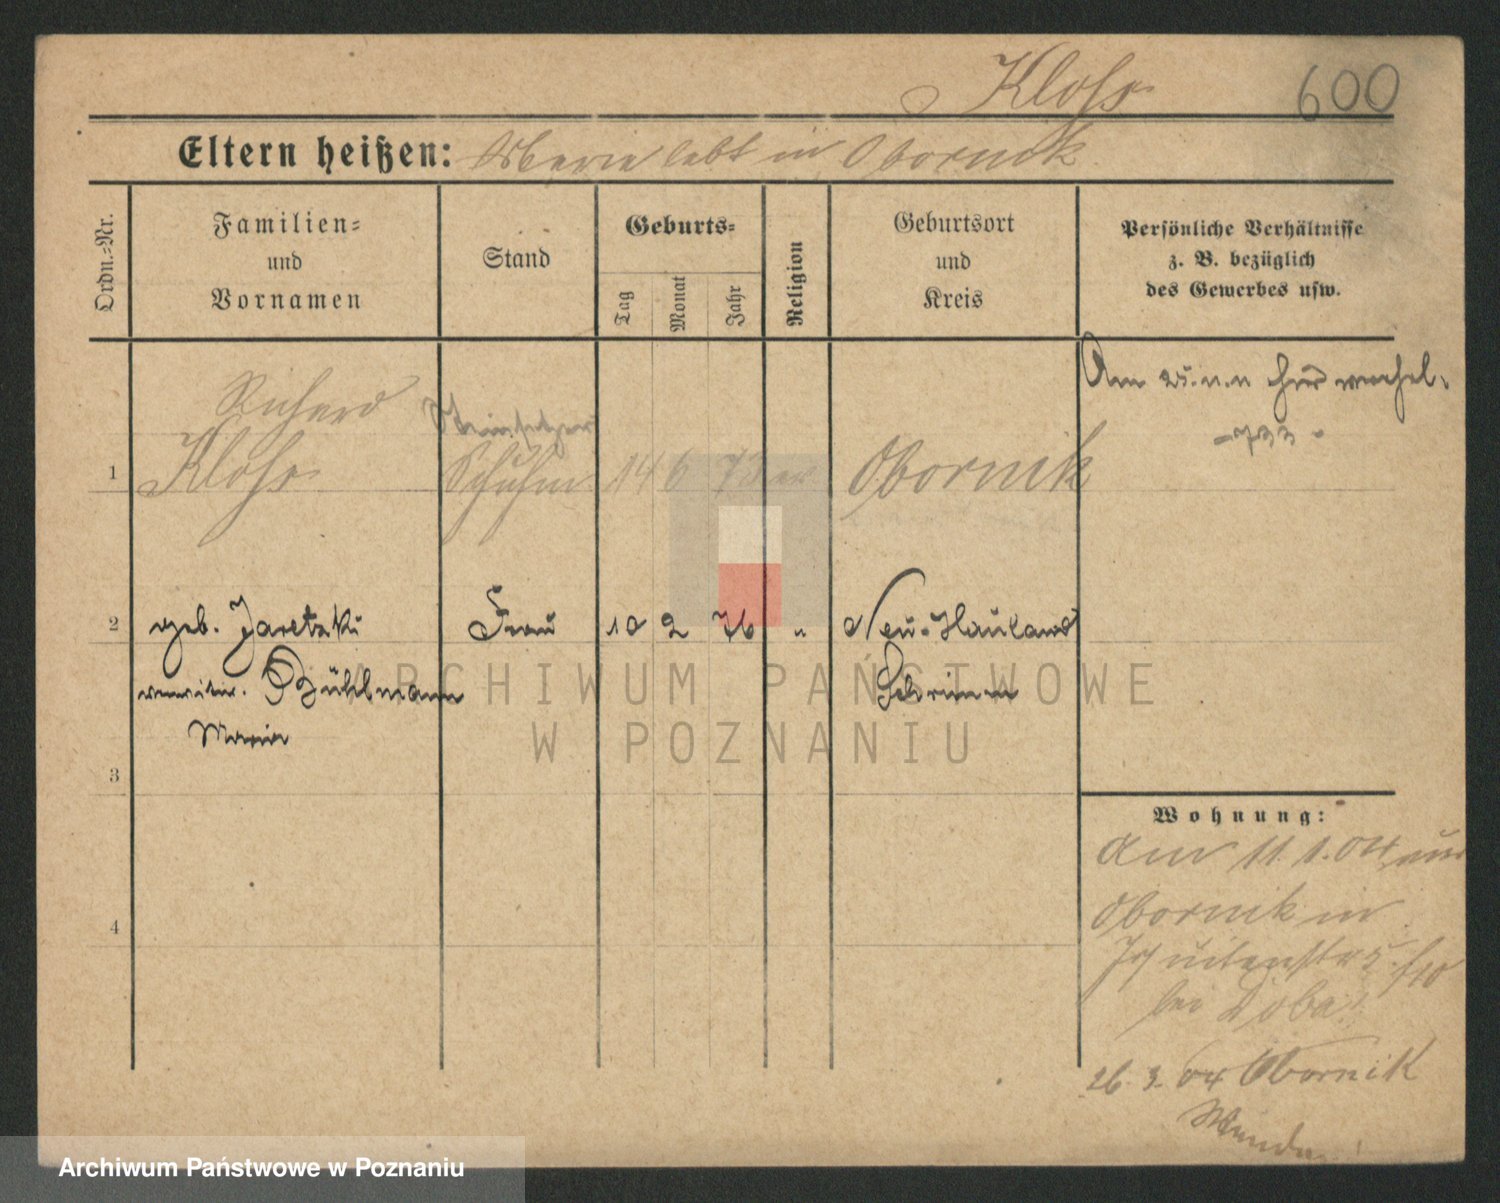 Kloss
600
Eltern heißen: Marie lebt in Obornik.
Ordn.-Nr.
Familien-
und
Vornamen
Stand
Geburts-
Tag
Monat
Jahr
Religion
Geburtsort
und
Kreis
Persönliche Verhältnisse
z. B. bezüglich
des Gewerbes usw.
Am
- 733 -
Richard
1 Kloss Schuhm 14 6 73 ev Obornik
2 geb. Jaretzki Frau 10 2 76 " Neu-Hauland
verwitw. Bühlmann Schrimm
Maria
3
Wohnung:
Am 11.1.04 aus
Obornik in
Jesuitenstr 5
bei
4
26. 3. 04 Obornik
ARCHIWUM PAŃSTWOWE
W POZNANIU
Archiwum Państwowe w Poznaniu